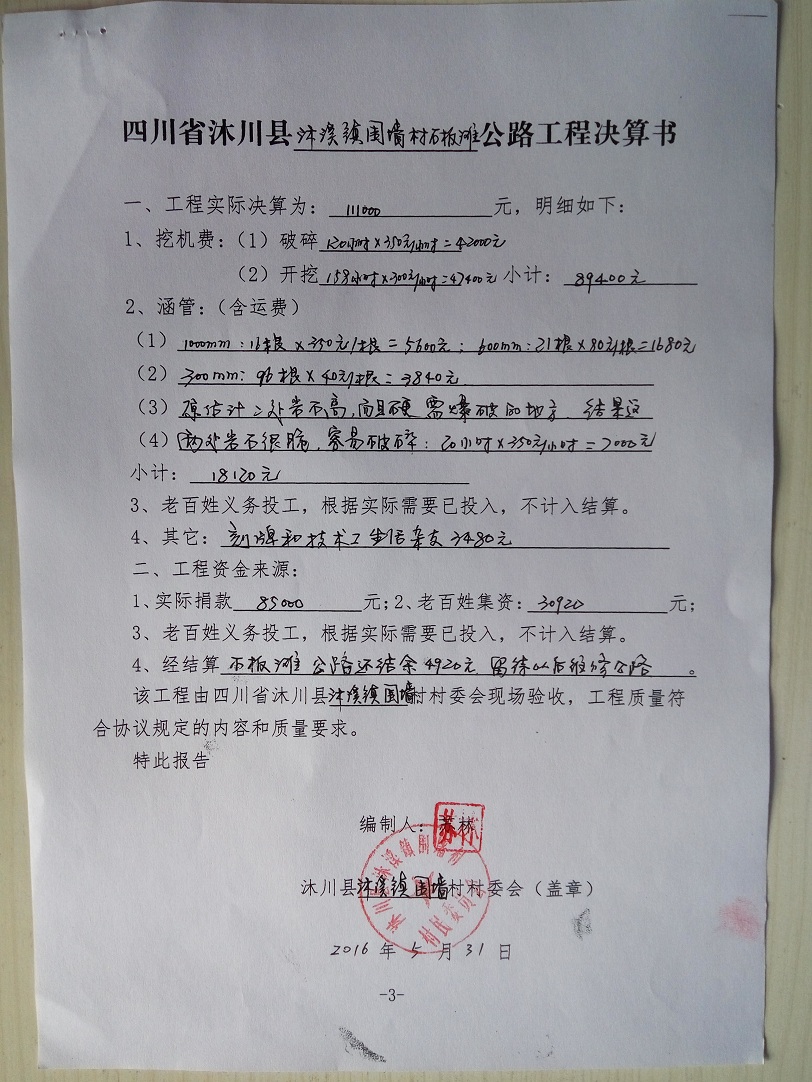 四川省沐川县沐溪镇围墙村石板滩公路工程决算书
一、工程实际决算为：111000元，明细如下：
1、挖机费：（1）破碎120小时×350元/小时=42000元
（2）开挖158小时×300元/小时=47400元 小计：89400元
2、涵管：（含运费）
（1）1000mm：16根×350元/根=5600元；600mm：21根×80元/根=1680元
（2）300mm：96根×40元/根=3840元
（3）原估计二处岩不高，而且硬需爆破的地方、结果这
（4）两处岩石很脆、容易破碎：20小时×350元/小时=7000元
小计：18120元
3、老百姓义务投工，根据实际需要已投入，不计入结算。
4、其它：刻牌和技术工生活杂支3480元
二、工程资金来源：
1、实际捐款85000元；2、老百姓集资：30920元；
3、老百姓义务投工，根据实际需要已投入，不计入结算。
4、经结算石板滩公路还结余4920元、留待以后维修公路。
该工程由四川省沐川县沐溪镇围墙村村委会现场验收，工程质量符
合协议规定的内容和质量要求。
特此报告
编制人：苏林
沐川县沐溪镇围墙村村委会（盖章）
沐川县沐溪镇围墙村村民委员会
2016年5月31日
-3-